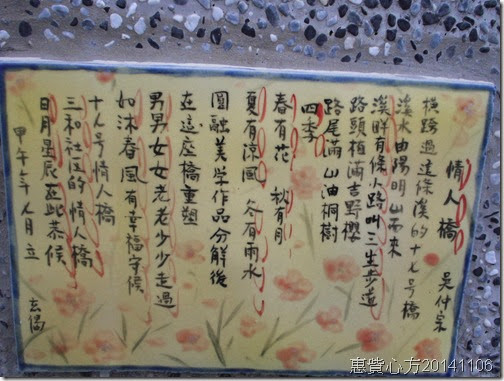 情人橋 吳仕宗
橫跨過這條溪的十七号橋
溪水由陽明山而來
溪畔有條小路叫三生步道
路頭植滿吉野櫻
路尾滿山油桐樹
四季
春有花 秋有月
夏有涼風 冬有雨水
圓融美学作品分解後
在這座橋重塑
男男女女老老少少走過
如沐春風有幸福守候
十七号情人橋
三和社区的情人橋
日月星辰在此恭候
甲午年八月立
惠貲心方20141106